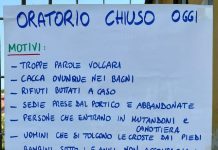 ORATORIO CHIUSO OGGI
MOTIVI:
- TROPPE PAROLE VOLGARI
- CACCA OVUNQUE NEI BAGNI
- RIFIUTI BUTTATI A CASO
- SEDIE PRESE DAL PORTICO E ABBANDONATE
- PERSONE CHE ENTRANO IN MUTANDONI E
CANOTTIERA
- UOMINI CHE SI TOLGONO LE CROSTE DAI PIEDI
- BAMBINI SOTTO I 5 ANNI NON